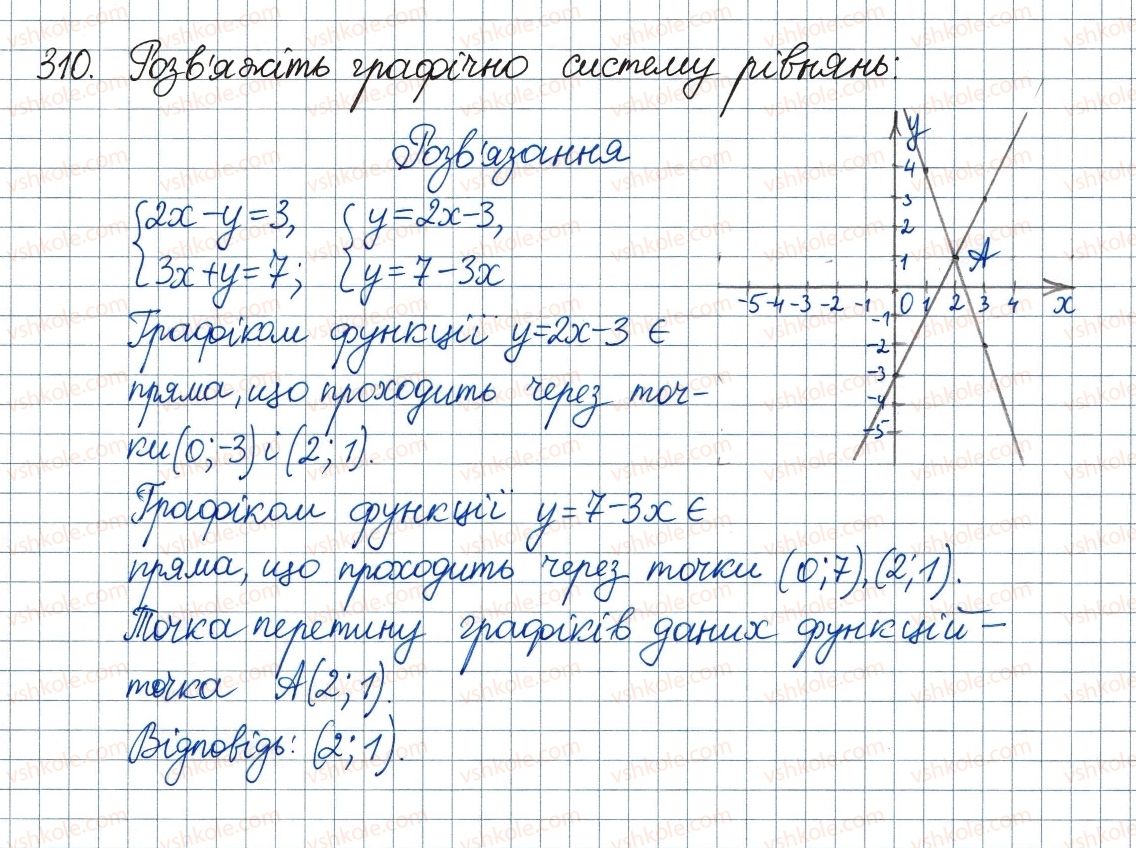 310. Розв'яжіть графічно систему рівнянь:
Розв'язання
{2x-y=3, {y=2x-3,
{3x+y=7; {y=7-3x
Графіком функції y=2x-3 є
пряма, що проходить через точ-
ки (0;-3) і (2;1).
Графіком функції y=7-3x є
пряма, що проходить через точки (0;7), (2;1).
Точка перетину графіків даних функцій -
точка A(2;1).
Відповідь: (2;1).
y
4
3
2
1
A
-5 -4 -3 -2 -1 0 1 2 3 4 x
-1
-2
-3
-4
-5
vshkole.com